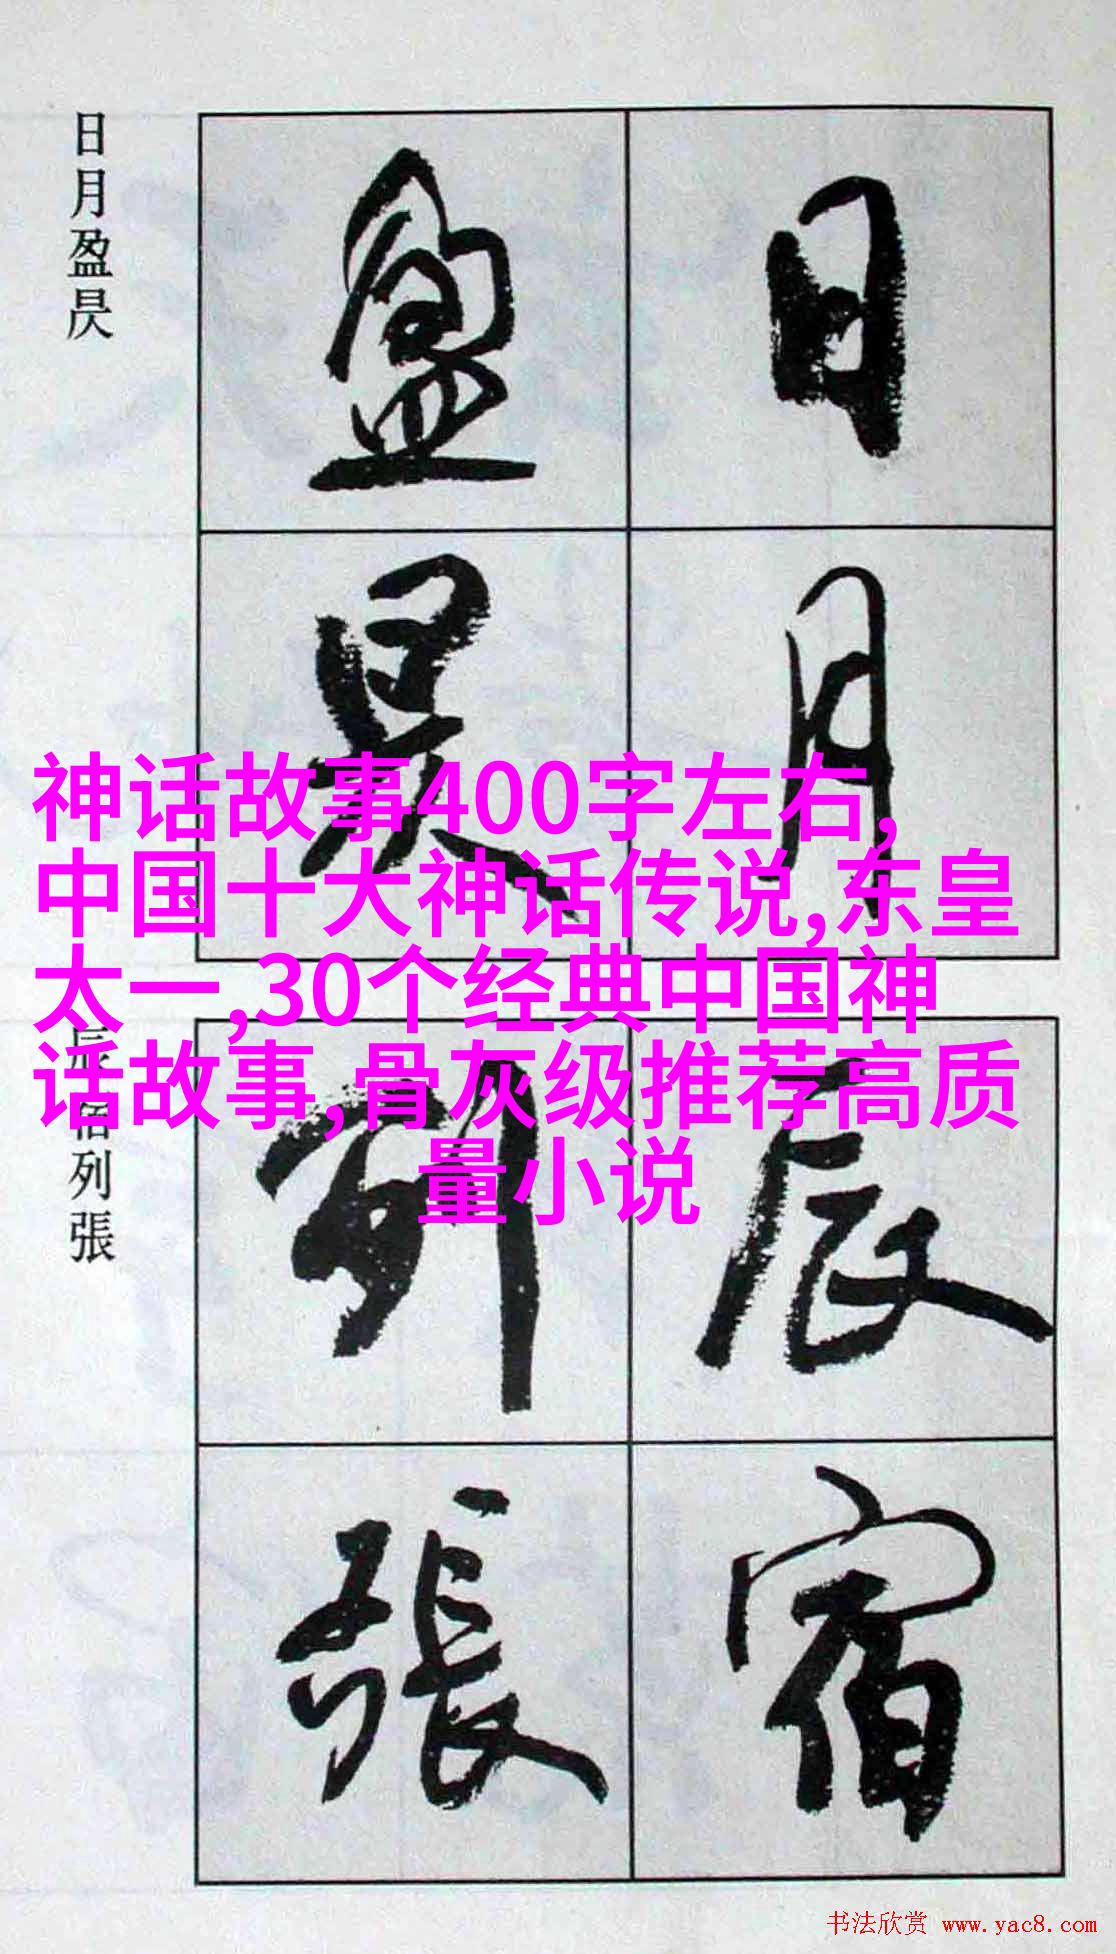 日月
盈昃
日月盈昃
神话故事400字左右,
中国十大神话传说,东皇
太一,30个经典中国神
话故事,骨灰级推荐高质
量小说
辰宿
列張
辰宿列張
书法欣赏 www.yac8.com